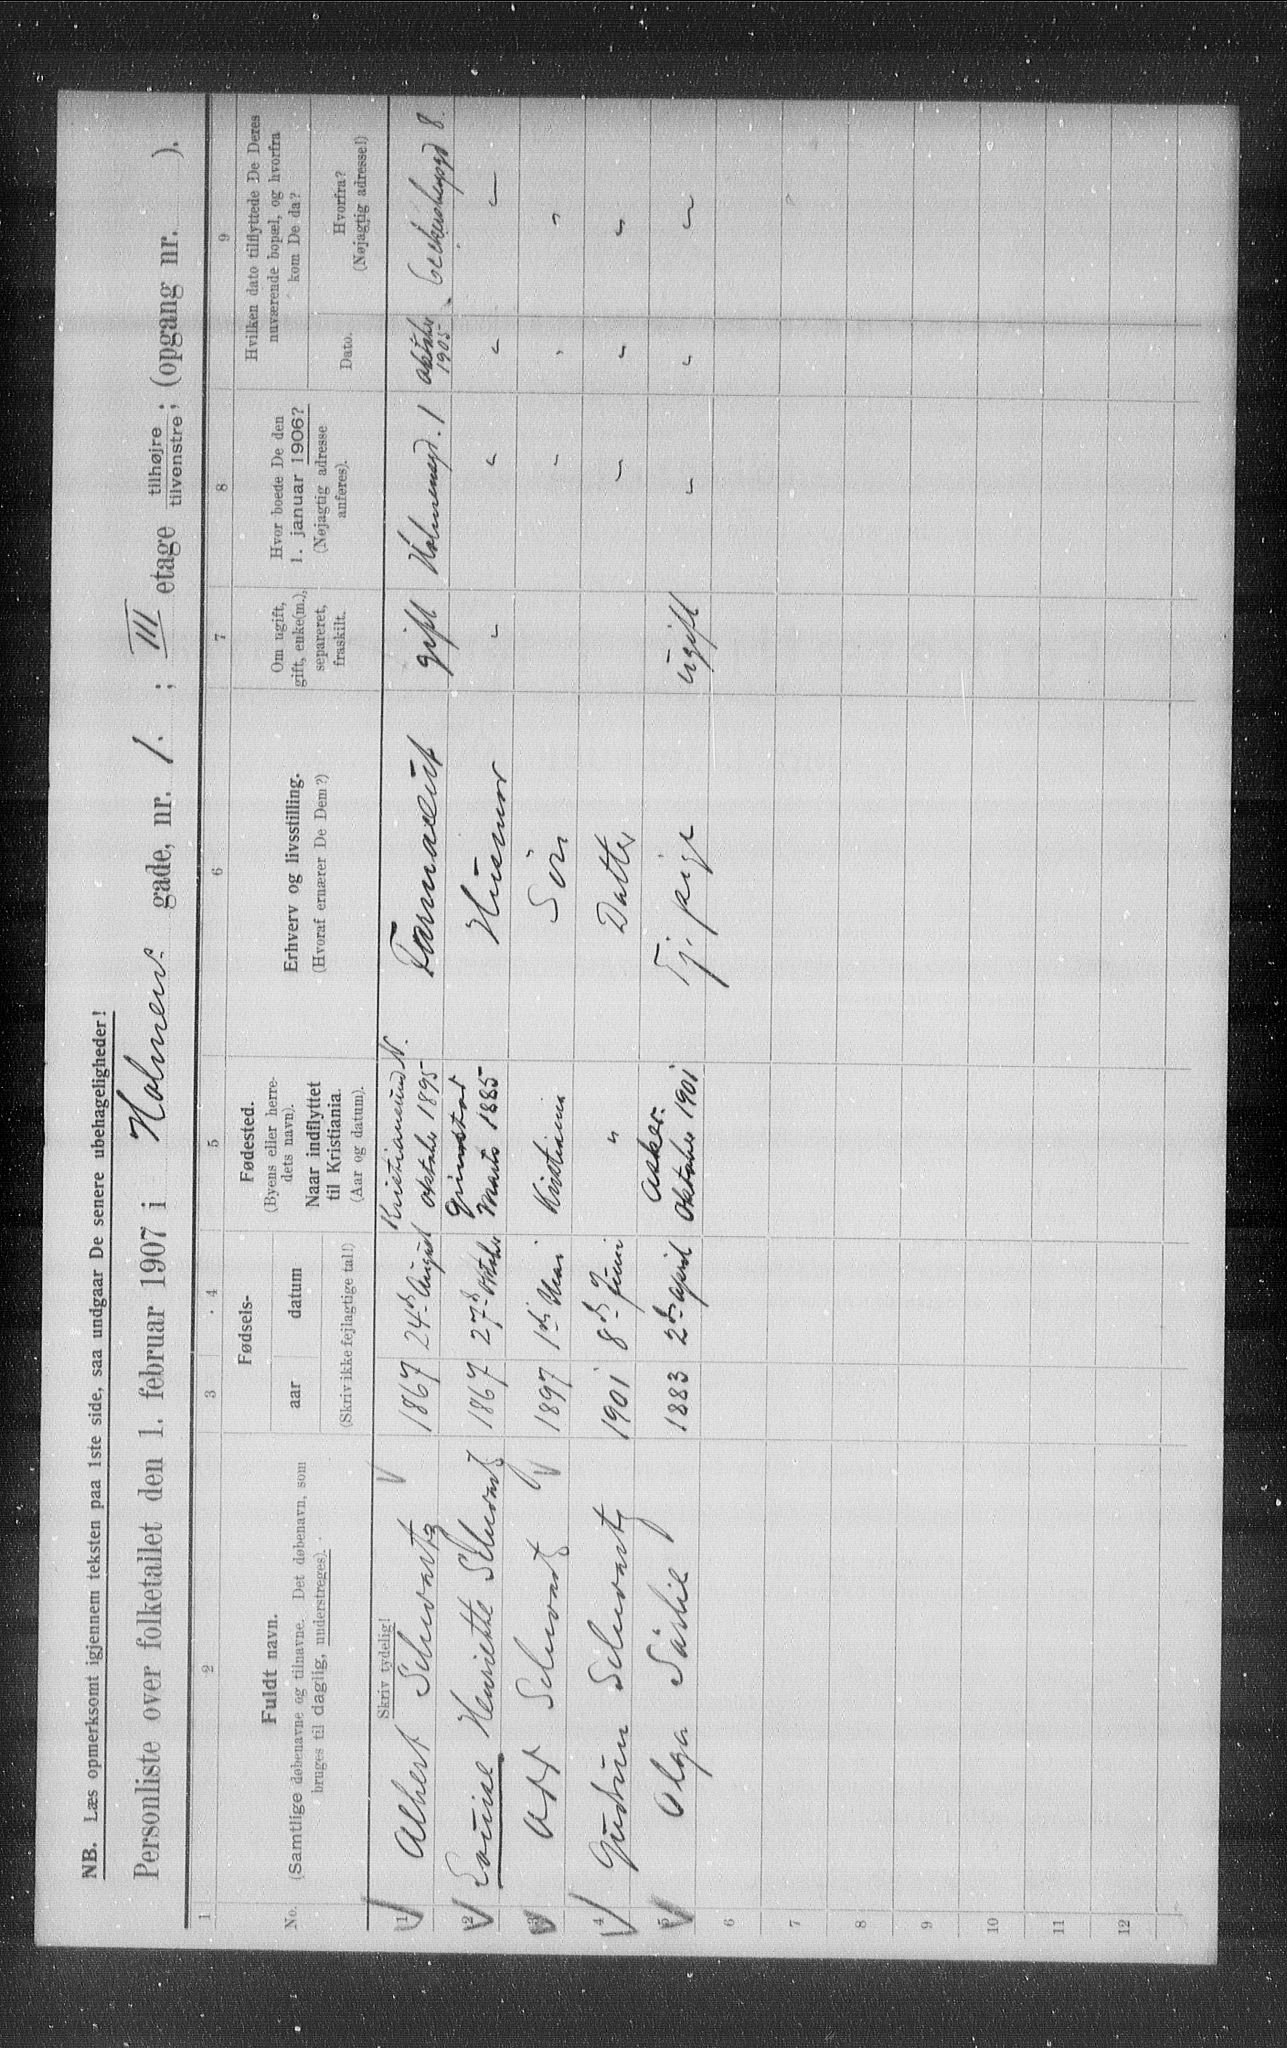 NB. Læs opmerksomt igjennem teksten paa 1ste side, saa undgaar De senere ubehageligheder!
Personliste over folketallet den 1. februar 1907 i Holmens gade, nr. 1. ; III etage tilhøjre / tilvenstre ; (opgang nr. ).
1 2 3 4 5 6 7 8 9
No.
Fuldt navn.
(Samtlige døbenavne og tilnavne. Det døbenavn, som
bruges til daglig, understreges).
Fødsels-
aar datum
(Skriv ikke fejlagtige tal!)
Fødested.
(Byens eller herre-
dets navn).
Naar indflyttet
til Kristiania.
(Aar og datum).
Erhverv og livsstilling.
(Hvoraf ernærer De Dem?)
Om ugift,
gift, enke(m.),
separeret,
fraskilt.
Hvor boede De den
1. januar 1906?
(Nøjagtig adresse
anføres).
Hvilken dato tilflyttede De Deres
nuværende bopæl, og hvorfra
kom De da?
Dato.
Hvorfra?
(Nøjagtig adresse!)
Skriv tydelig!
1 Albert Schwartz 1867 24de August Kristiansund N. oktober 1895 gift Holmensgd. 1 oktober 1905
2 Louise Henriette Schwartz 1867 27de oktober Grimstad Marts 1885 Husmor " " " "
3 Schwartz 1897 1ste Mai Kristiania Søn " " "
4 Gudrun Schwartz 1901 8de Juni " Datter " " "
5 Olga Sørlie 1883 2den april Asker. Oktober 1901 Tj. pige ugift " " "
6
7
8
9
10
11
12